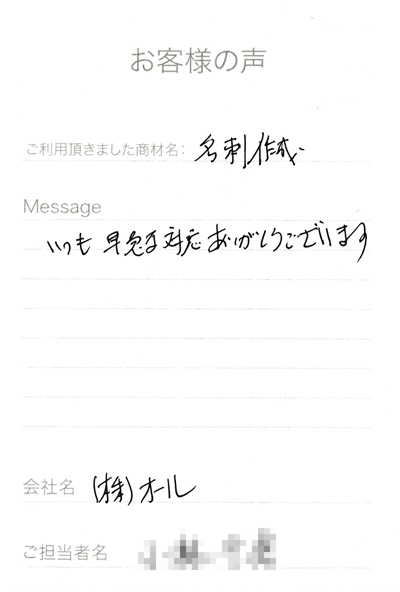 お客様の声
ご利用頂きました商材名： 名刺作成
Message
いつも 早急な対応 ありがとうございます
会社名 (株)オール
ご担当者名